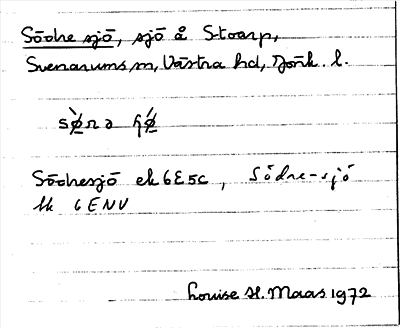 Södre sjö, sjö å Stoarp,
Svenarums sn, Västra hd, Jönk. l.
sø̀rə ɧǿ
Södresjö ek 6E5c, Södre-sjö
lk 6ENV
Louise H. Maas 1972